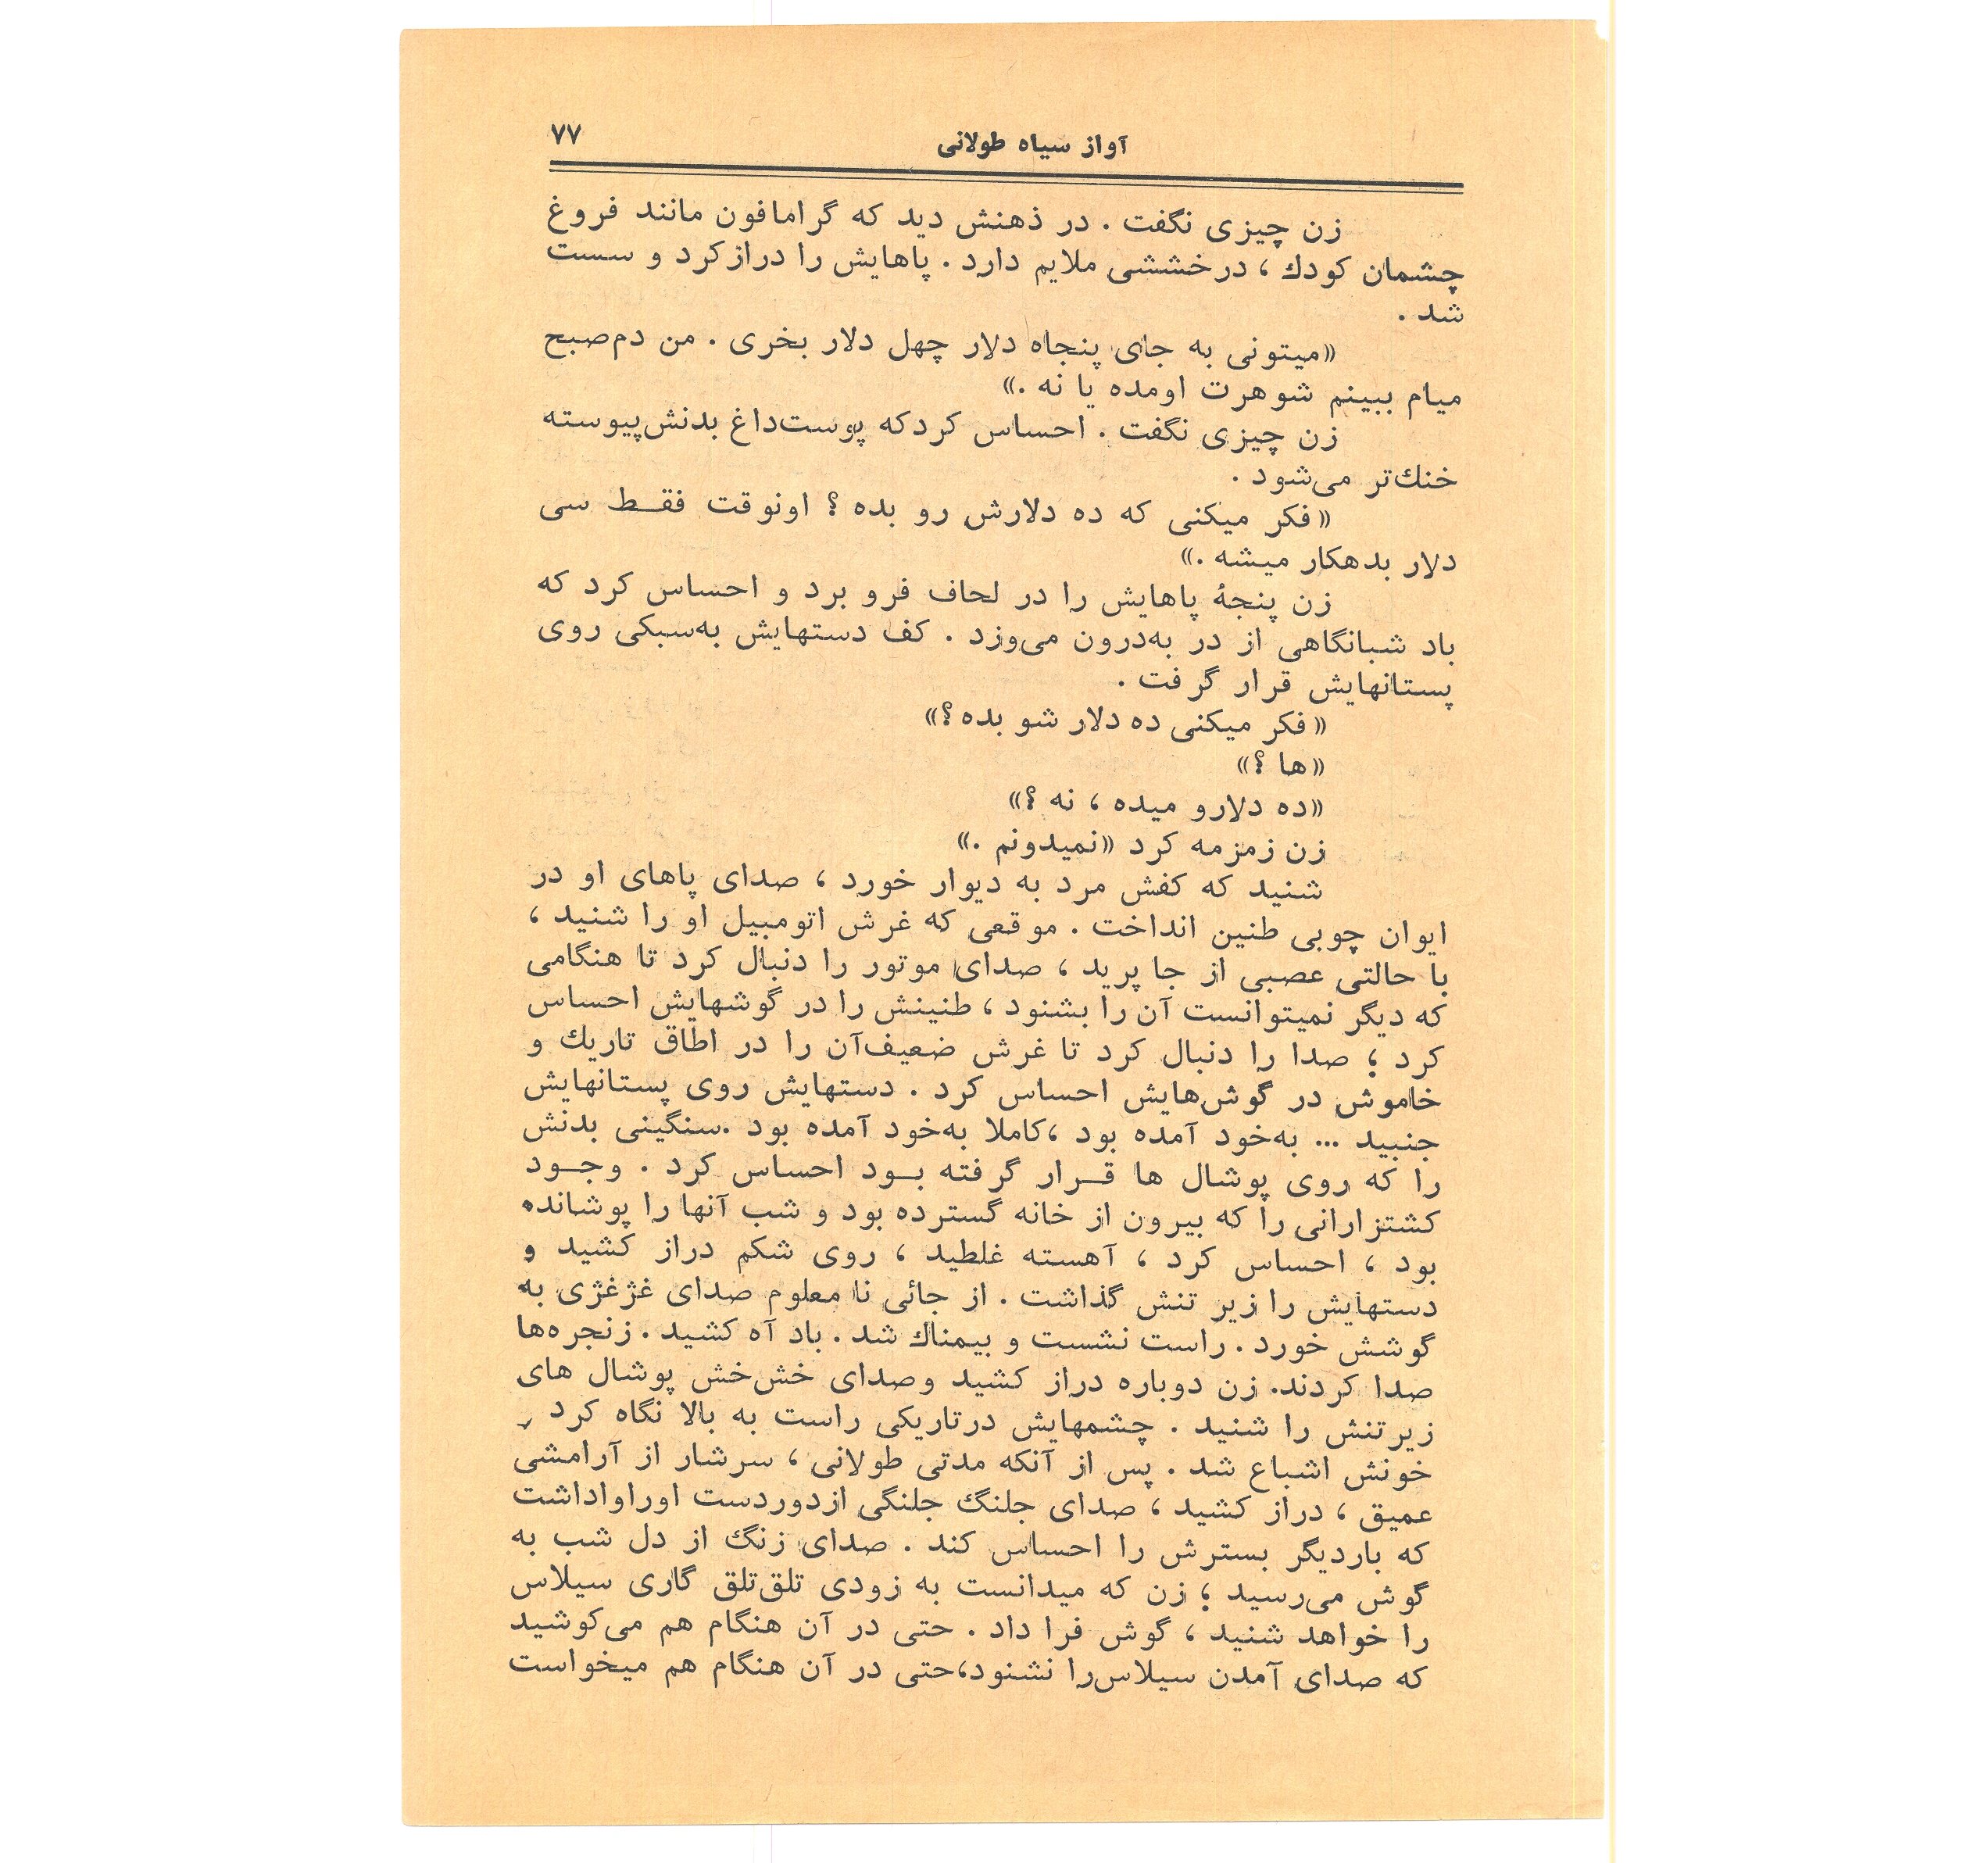 آواز سیاه طولانی ۷۷
زن چیزی نگفت . در ذهنش دید که گرامافون مانند فروغ
چشمان کودك ، درخششی ملایم دارد . پاهایش را درازکرد و سست
شد .
«میتونی به جای پنجاه دلار چهل دلار بخری . من دم‌صبح
میام ببینم شوهرت اومده یا نه .»
زن چیزی نگفت . احساس کردکه پوست‌داغ بدنش‌پیوسته
خنك‌تر می‌شود .
« فکر میکنی که ده دلارش رو بده ؟ اونوقت فقـــط سی
دلار بدهکار میشه .»
زن پنجهٔ پاهایش را در لحاف فرو برد و احساس کرد که
باد شبانگاهی از در به‌درون می‌وزد . کف دستهایش به‌سبکی روی
پستانهایش قرار گرفت .
« فکر میکنی ده دلار شو بده ؟»
«ها ؟»
«ده دلارو میده ، نه ؟»
زن زمزمه کرد «نمیدونم .»
شنید که کفش مرد به دیوار خورد ، صدای پاهای او در
ایوان چوبی طنین انداخت . موقعی که غرش اتومبیل او را شنید ،
با حالتی عصبی از جا پرید ، صدای موتور را دنبال کرد تا هنگامی
که دیگر نمیتوانست آن را بشنود ، طنینش را در گوشهایش احساس
کرد ؛ صدا را دنبال کرد تا غرش ضعیف‌آن را در اطاق تاریك و
خاموش در گوش‌هایش احساس کرد . دستهایش روی پستانهایش
جنبید ... به‌خود آمده بود ،کاملا به‌خود آمده بود .سنگینی بدنش
را که روی پوشال ها قـــرار گرفته بــود احساس کرد . وجــود
کشتزارانی را که بیرون از خانه گسترده بود و شب آنها را پوشانده
بود ، احساس کرد ، آهسته غلطید ، روی شکم دراز کشید و
دستهایش را زیر تنش گذاشت . از جائی نا معلوم صدای غژغژی به
گوشش خورد . راست نشست و بیمناك شد . باد آه کشید . زنجره‌ها
صدا کردند. زن دوباره دراز کشید وصدای خش‌خش پوشال های
زیرتنش را شنید . چشمهایش درتاریکی راست به بالا نگاه کرد ر
خونش اشباع شد . پس از آنکه مدتی طولانی ، سرشار از آرامشی
عمیق ، دراز کشید ، صدای جلنگ جلنگی ازدوردست اوراواداشت
که باردیگر بسترش را احساس کند . صدای زنگ از دل شب به
گوش می‌رسید ؛ زن که میدانست به زودی تلق‌تلق گاری سیلاس
را خواهد شنید ، گوش فرا داد . حتی در آن هنگام هم می‌کوشید
که صدای آمدن سیلاس‌را نشنود،حتی در آن هنگام هم میخواست